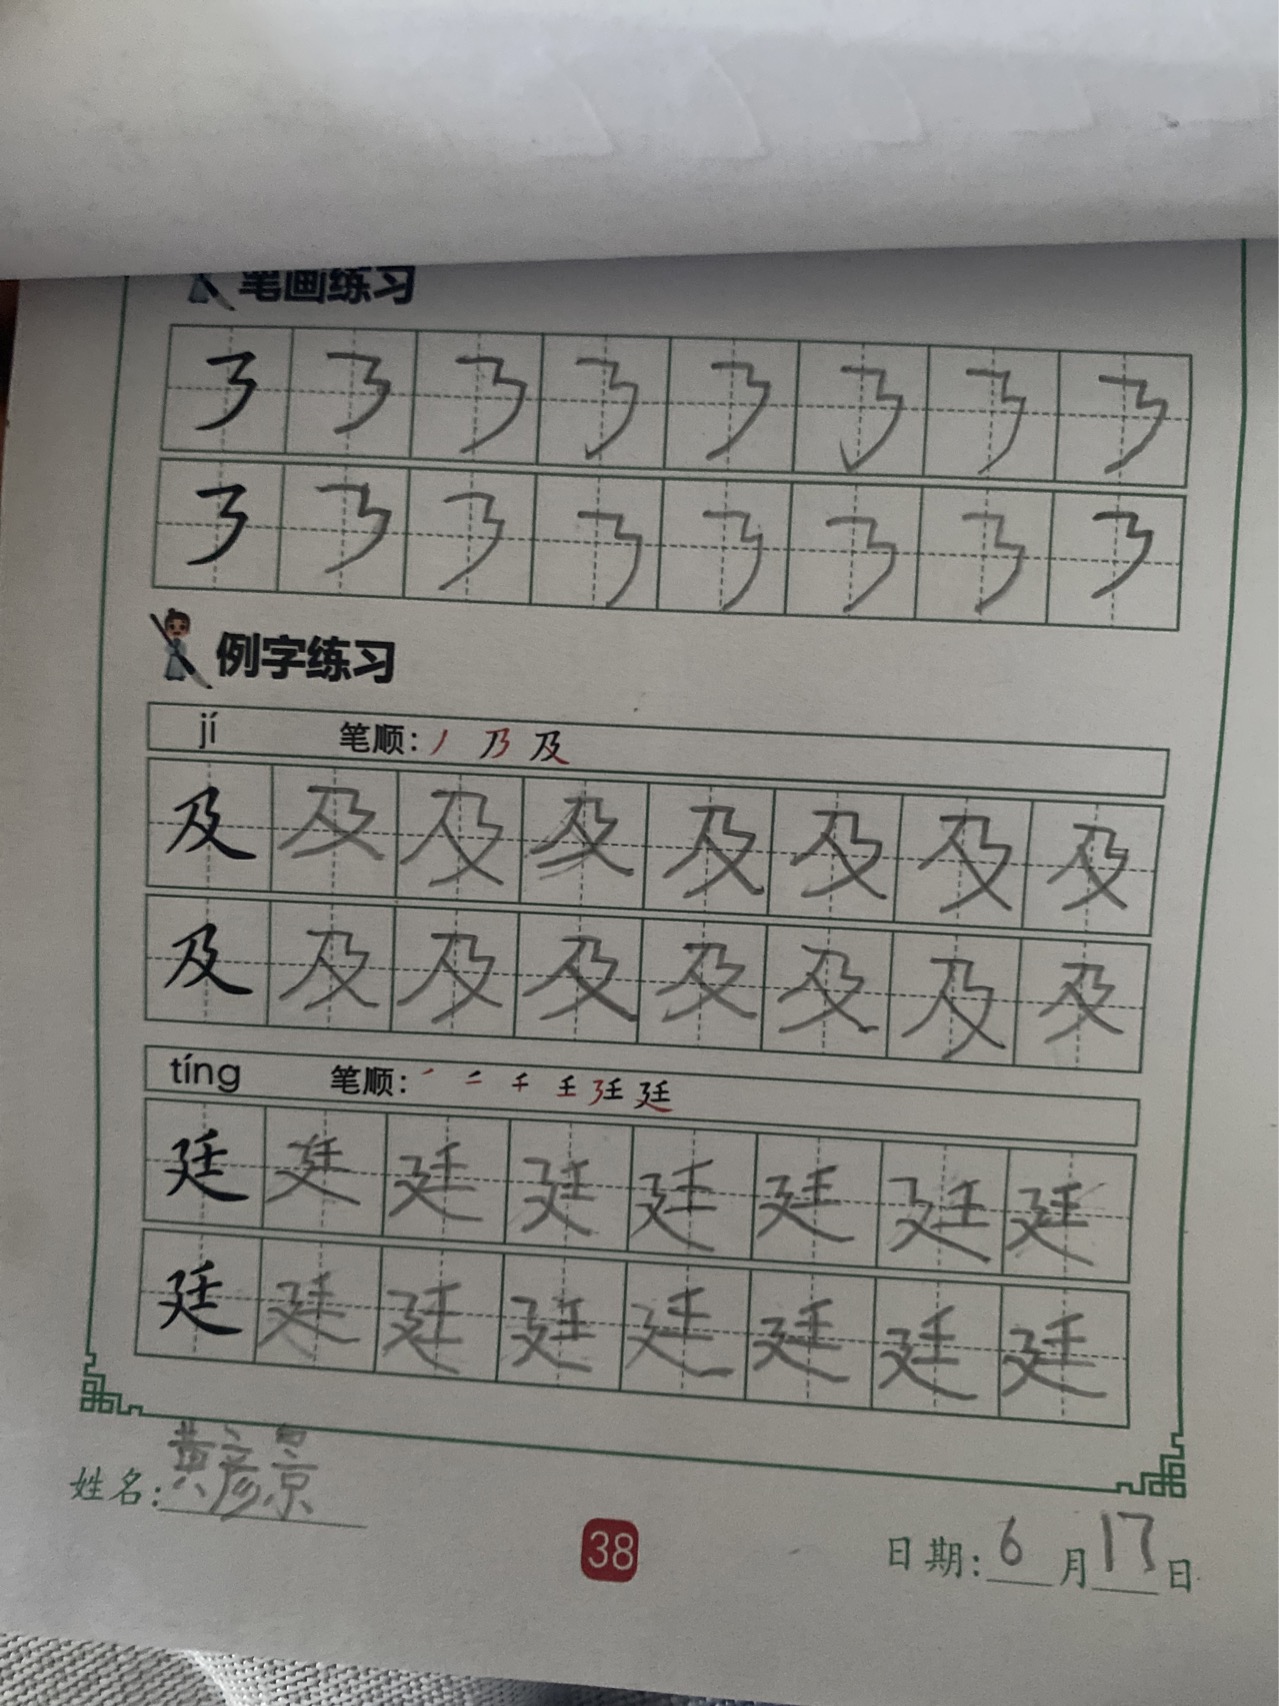 笔画练习
㇋ ㇋ ㇋ ㇋ ㇋ ㇋ ㇋ ㇋
㇋ ㇋ ㇋ ㇋ ㇋ ㇋ ㇋ ㇋
例字练习
jí 笔顺: 丿 乃 及
及 及 及 及 及 及 及 及
及 及 及 及 及 及 及 及
tíng 笔顺: ㇒ 二 千 壬 廷 廷
廷 廷 廷 廷 廷 廷 廷 廷
廷 廷 廷 廷 廷 廷 廷 廷
姓名: 黄彦景
38
日期: 6月17日